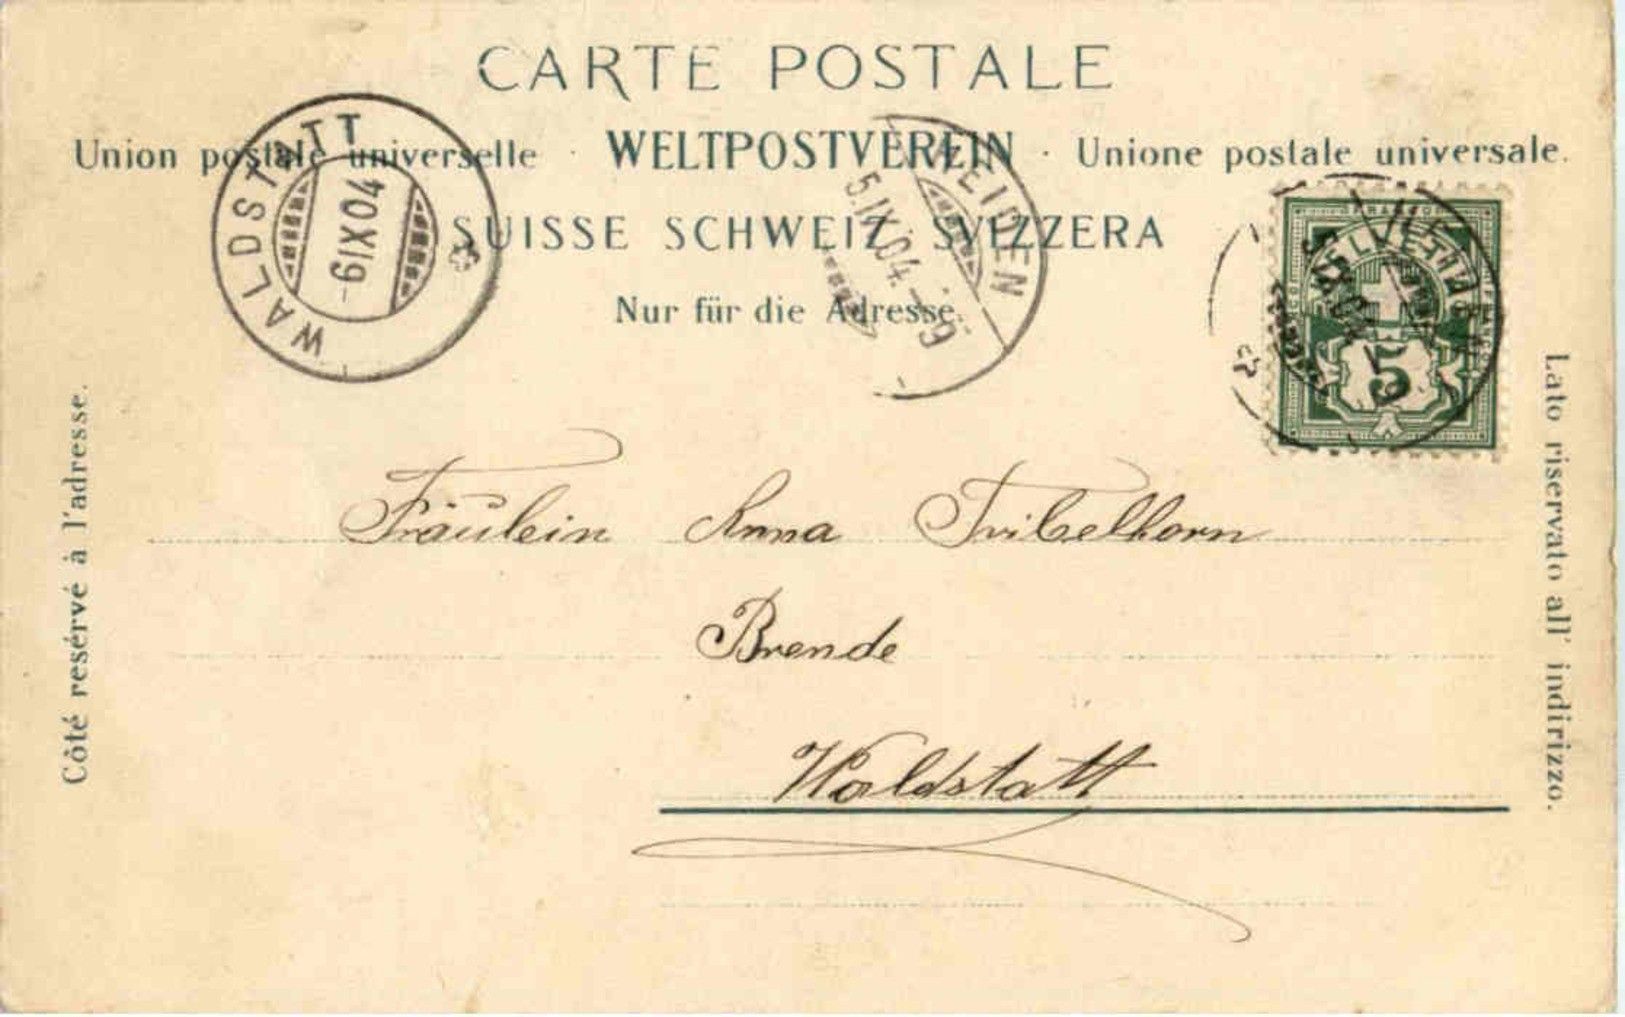 CARTE POSTALE
Union postale universelle · WELTPOSTVEREIN · Unione postale universale.
SUISSE SCHWEIZ SVIZZERA
Nur für die Adresse.
WALDSTATT
-6 IX 04
5. IX. 04. - 9
HEIDEN
HELVETIA
5
Côté resérvé à l'adresse.
Lato riservato all' indirizzo.
Fräulein Anna Tribelhorn
Brende
Waldstatt